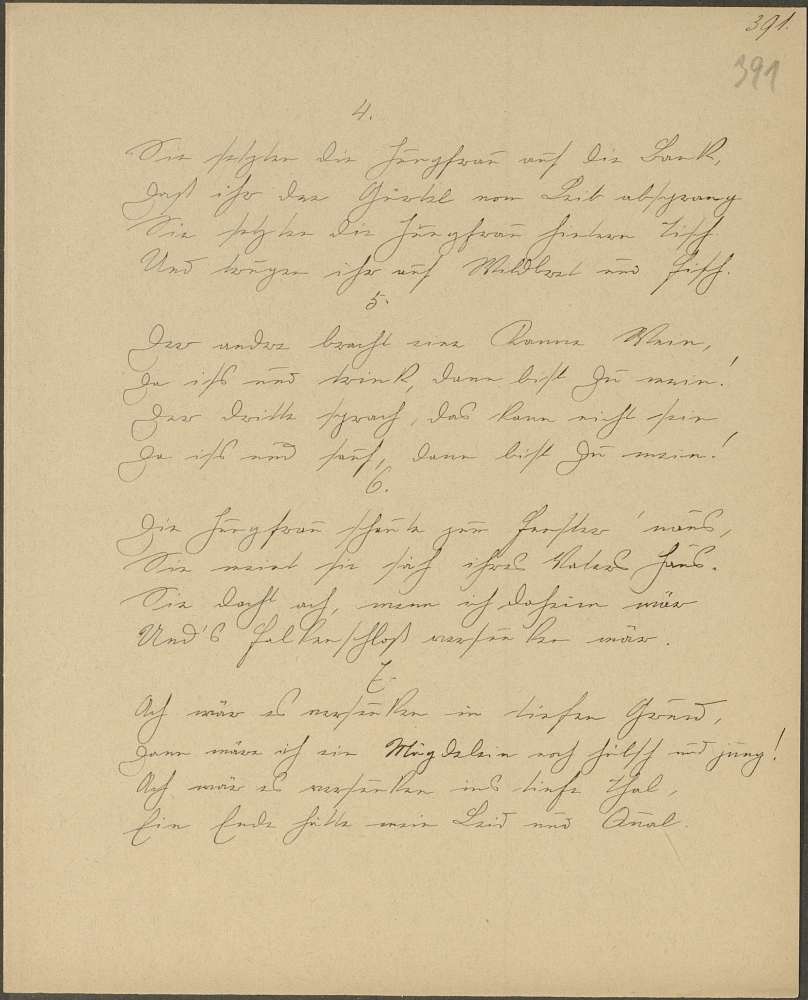 391.
391
4.
Sie setzten die Jungfrau auf die Bank,
Daß ihr der Gürtel vom Leib absprang
Sie setzten die Jungfrau hintern Tisch
Und trugen ihr auf Wildbret und Fisch.
5.
Der andre bracht eine Kanne Wein,
Da iss und trink, dann bist Du mein!
Der dritte sprach, das kann nicht sein
Da iss und sauf, dann bist Du mein!
6.
Die Jungfrau schaute zum Fenster 'naus,
Sie meint sie säh ihres Vaters Haus.
Sie dacht ach, wenn ich daheim wär
Und's Falkenschloß versunken wär.
7.
Ach wär es versunken in tiefen Grund,
Dann wäre ich ein Mägdelein noch hübsch und jung!
Ach wär es versunken ins tiefe Thal,
Ein Ende hätte mein Leid und Qual.